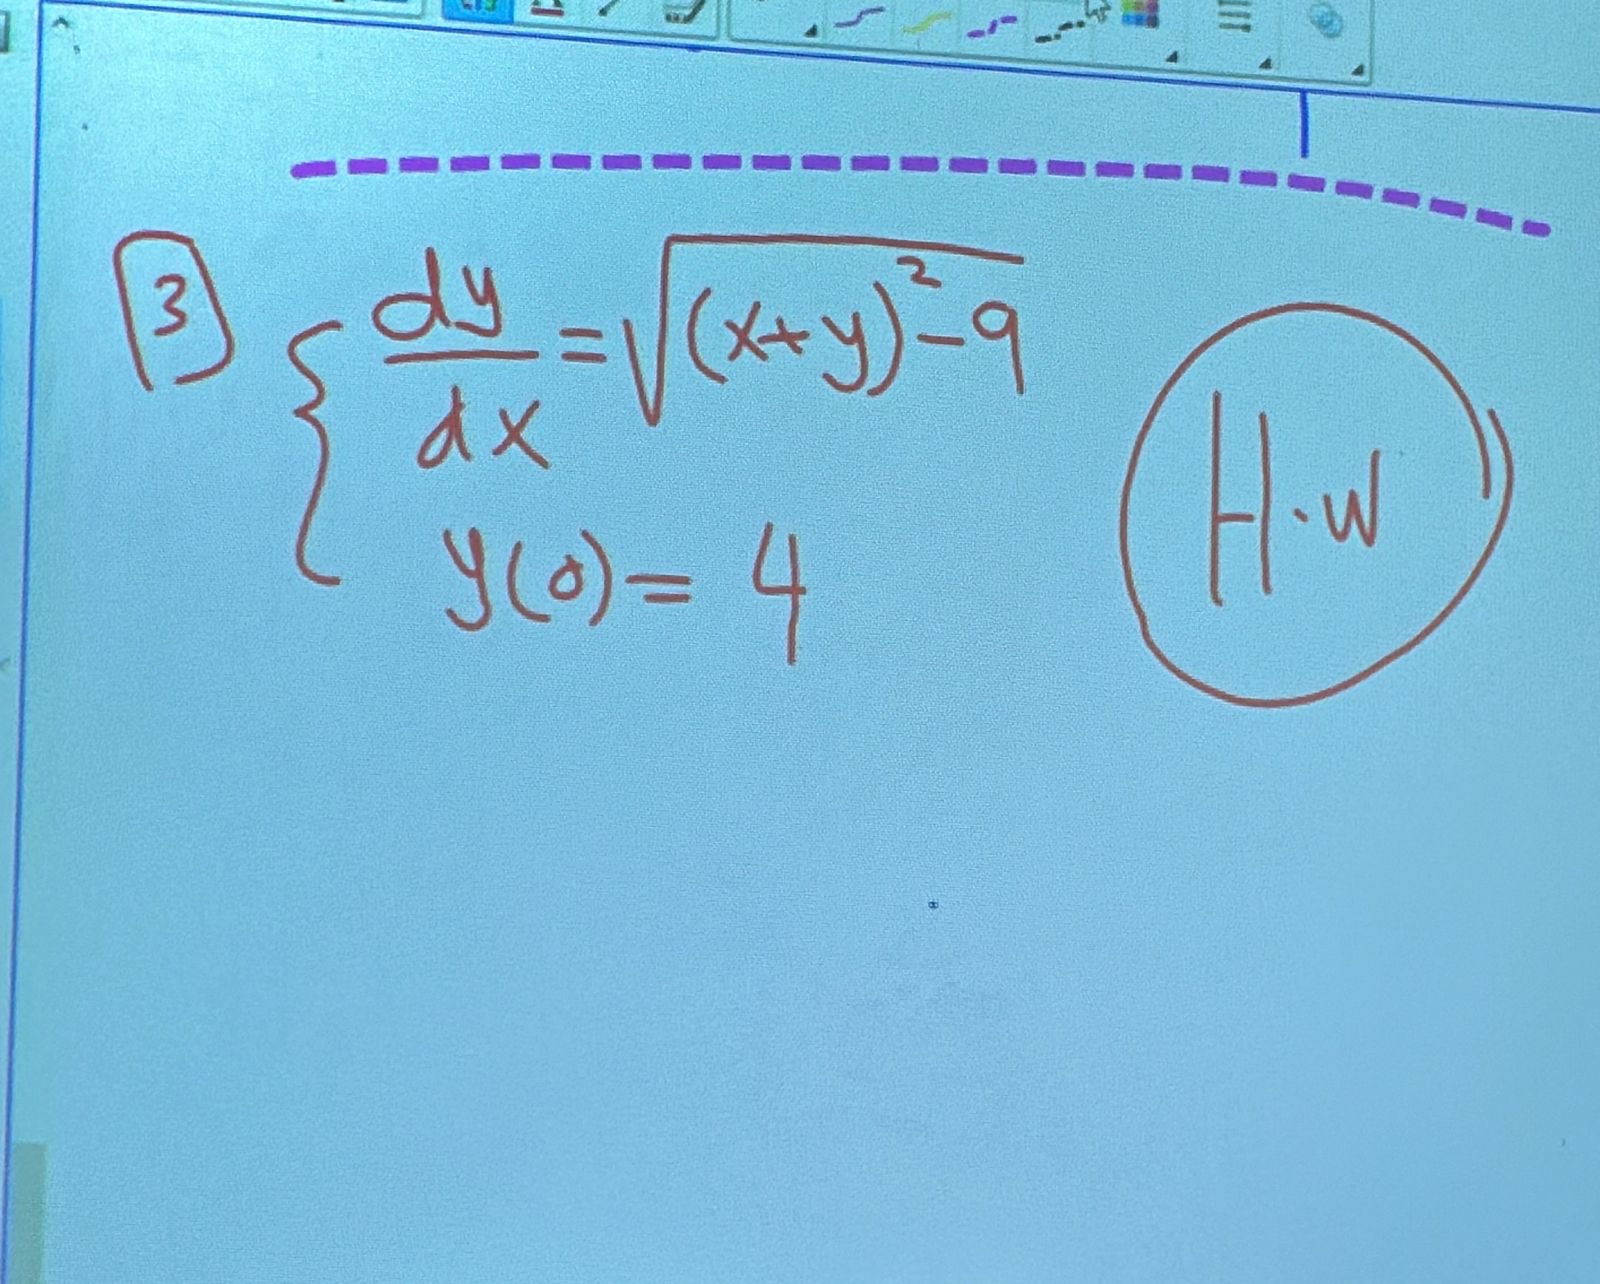 3
dy/dx = √((x+y)²-9)
y(0) = 4
H.W